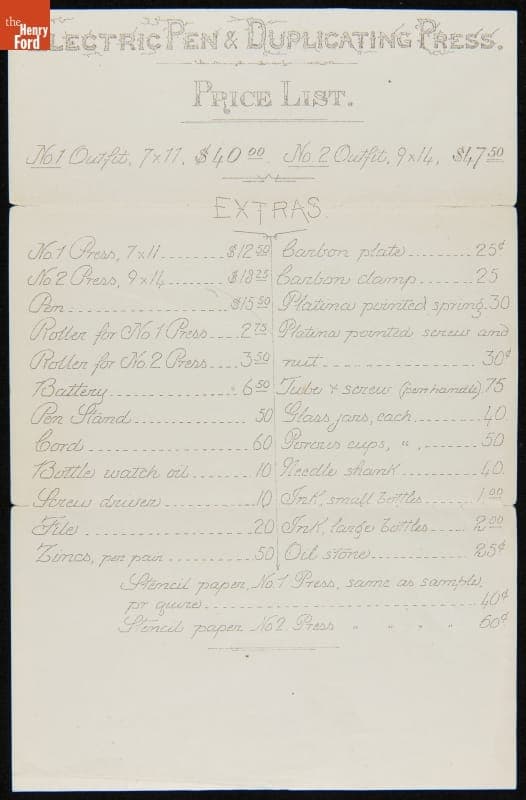 the
Henry
Ford
Electric Pen & Duplicating Press.
Price List.
No 1 Outfit, 7x11, $40 00 No. 2 Outfit, 9x14, $47.50
EXTRAS
No. 1 Press, 7x11 $12 50
No 2 Press, 9x14 $18 25
Pen $15 50
Roller for No. 1 Press 2 75
Roller for No. 2 Press 3 50
Battery 6 50
Pen Stand 50
Cord 60
Bottle watch oil 10
Screw driver 10
File 20
Zincs, per pair 50
Carbon plate 25¢
Carbon clamp 25
Platina pointed spring 30
Platina pointed screw and
nut 30¢
Tube & screw (pen handle) 75
Glass jars, each 40
Porous cups, " , 50
Needle shank 40
Ink, small bottles 1 00
Ink, large bottles 2 00
Oil stone 25¢
Stencil paper, No. 1 Press, same as sample,
pr quire 40¢
Stencil paper No 2. Press " " " " 60¢